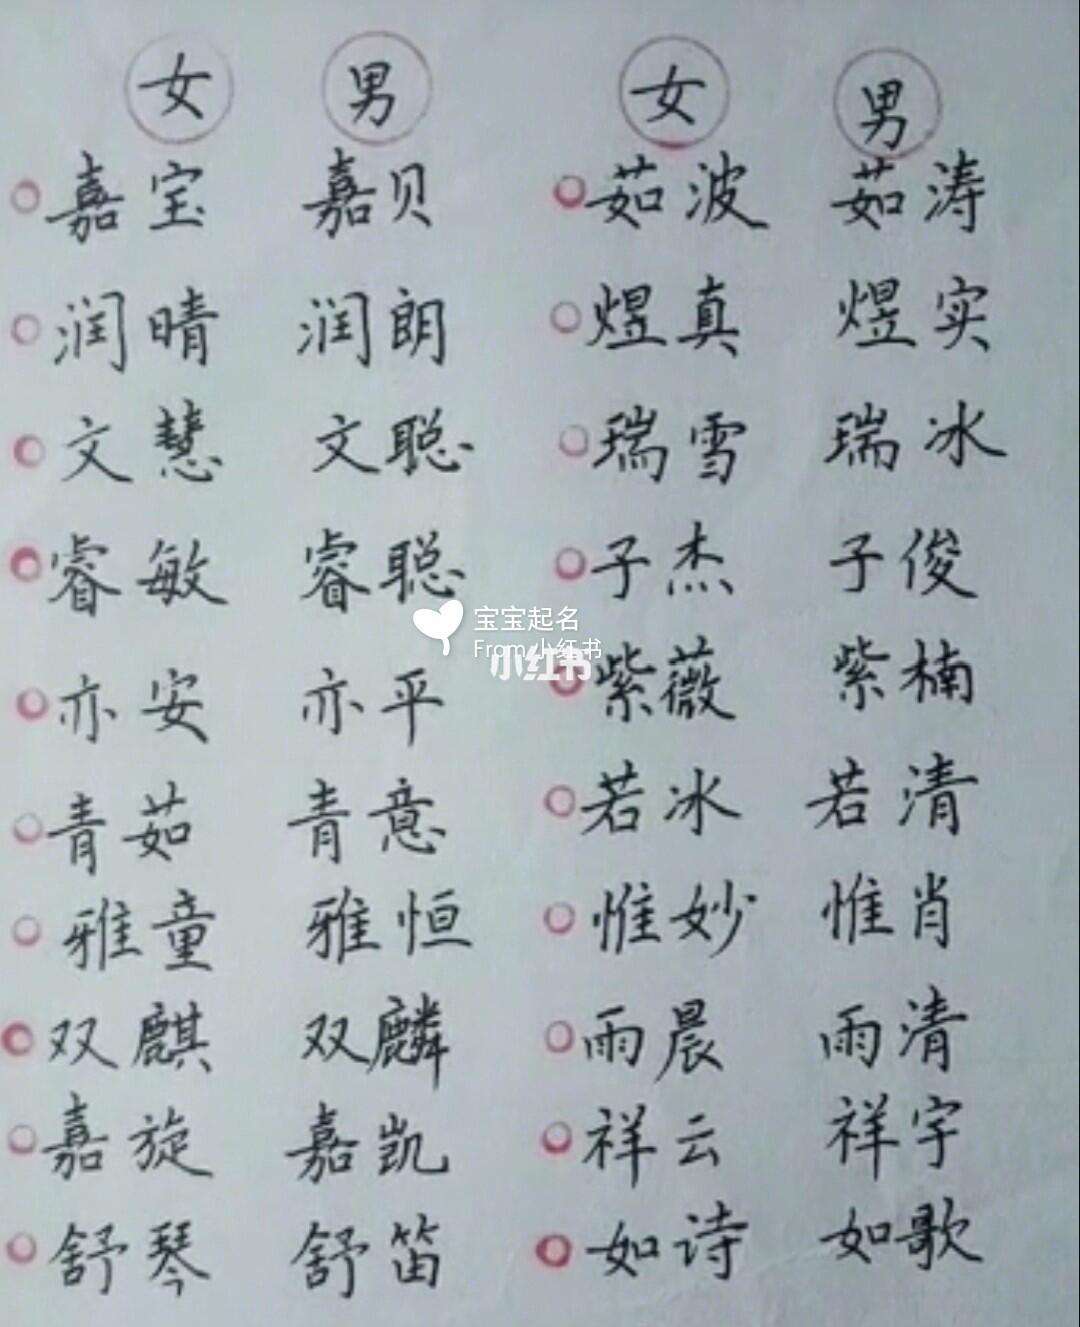 女 男 女 男
嘉宝 嘉贝 茹波 茹涛
润晴 润朗 煜真 煜实
文慧 文聪 瑞雪 瑞冰
睿敏 睿聪 子杰 子俊
宝宝起名
From 小红书
小红书
亦安 亦平 紫薇 紫楠
青茹 青意 若冰 若清
雅童 雅恒 惟妙 惟肖
双麒 双麟 雨晨 雨清
嘉旋 嘉凯 祥云 祥宇
舒琴 舒笛 如诗 如歌